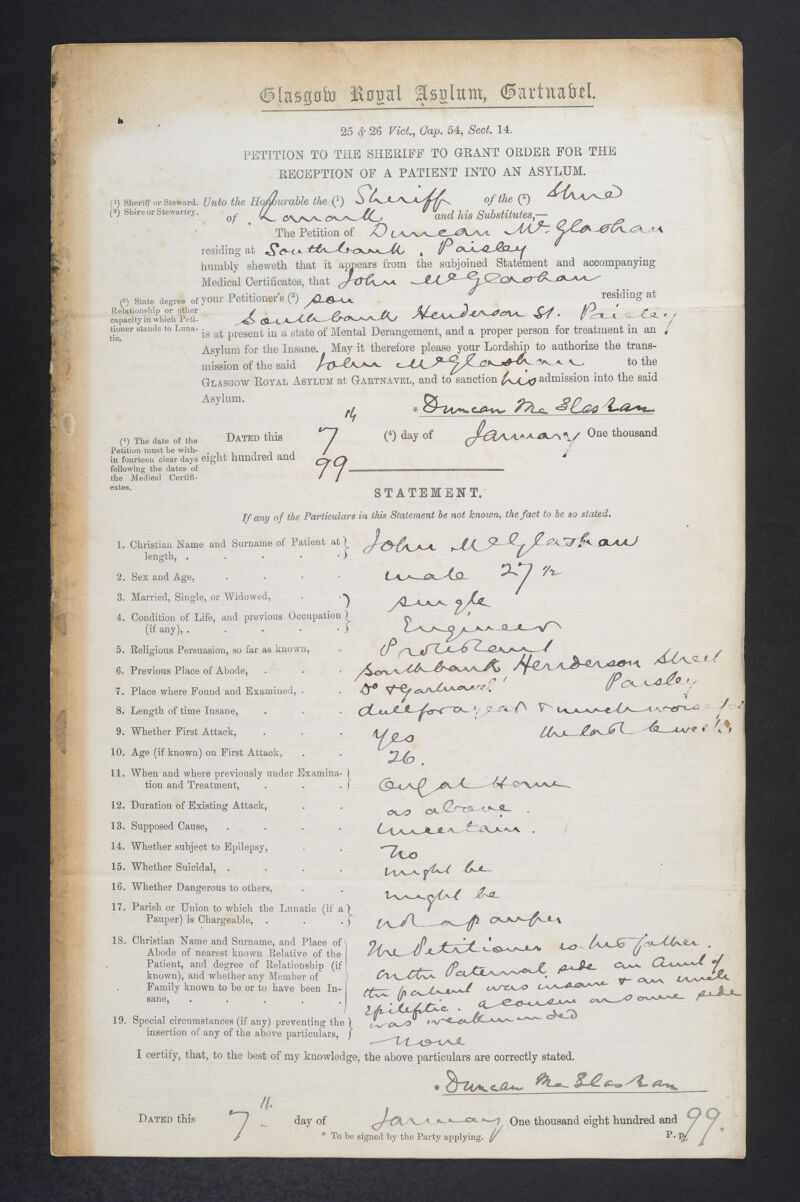 Glasgow Royal Asylum, Gartnavel.
25 & 26 Vict., Cap. 54, Sect. 14.
PETITION TO THE SHERIFF TO GRANT ORDER FOR THE
RECEPTION OF A PATIENT INTO AN ASYLUM.
(¹) Sheriff or Steward.
(²) Shire or Stewartry.
Unto the Honourable the (¹) Sheriff of the (²) Shire
of Lanark and his Substitutes,—
The Petition of Duncan McGlashan
residing at Southbank, Paisley
humbly sheweth that it appears from the subjoined Statement and accompanying
Medical Certificates, that John McGlashan
(³) State degree of
Relationship or other
capacity in which Peti-
tioner stands to Luna-
tic.
your Petitioner's (³) son residing at
Southbank Henderson St. Paisley
is at present in a state of Mental Derangement, and a proper person for treatment in an
Asylum for the Insane. May it therefore please your Lordship to authorize the trans-
mission of the said John McGlashan to the
GLASGOW ROYAL ASYLUM at GARTNAVEL, and to sanction his admission into the said
Asylum.
* Duncan McGlashan
(⁴) The date of the
Petition must be with-
in fourteen clear days
following the dates of
the Medical Certifi-
cates.
DATED this 7th (⁴) day of January One thousand
eight hundred and 99
STATEMENT.
If any of the Particulars in this Statement be not known, the fact to be so stated.
1. Christian Name and Surname of Patient at length, . John McGlashan
2. Sex and Age, male 27 ½
3. Married, Single, or Widowed, single
4. Condition of Life, and previous Occupation (if any), . Engineer
5. Religious Persuasion, so far as known, Protestant
6. Previous Place of Abode, Southbank Henderson Street Paisley
7. Place where Found and Examined, Do & Gartnavel
8. Length of time Insane, dull for a year & much worse for the last 6 weeks
9. Whether First Attack, Yes
10. Age (if known) on First Attack, 26.
11. When and where previously under Examination and Treatment, Only at Home
12. Duration of Existing Attack, as above.
13. Supposed Cause, uncertain.
14. Whether subject to Epilepsy, No
15. Whether Suicidal, might be
16. Whether Dangerous to others, might be
17. Parish or Union to which the Lunatic (if a Pauper) is Chargeable, not a pauper
18. Christian Name and Surname, and Place of
Abode of nearest known Relative of the
Patient, and degree of Relationship (if
known), and whether any Member of
Family known to be or to have been In-
sane,
The Petitioner is his father.
On the Paternal side an Aunt of
the patient was insane & an uncle
Epileptic. a cousin on same side
was weakminded
19. Special circumstances (if any) preventing the
insertion of any of the above particulars,
None
I certify, that, to the best of my knowledge, the above particulars are correctly stated.
* Duncan McGlashan
DATED this 7th day of January One thousand eight hundred and 99.
* To be signed by the Party applying.
P. p.